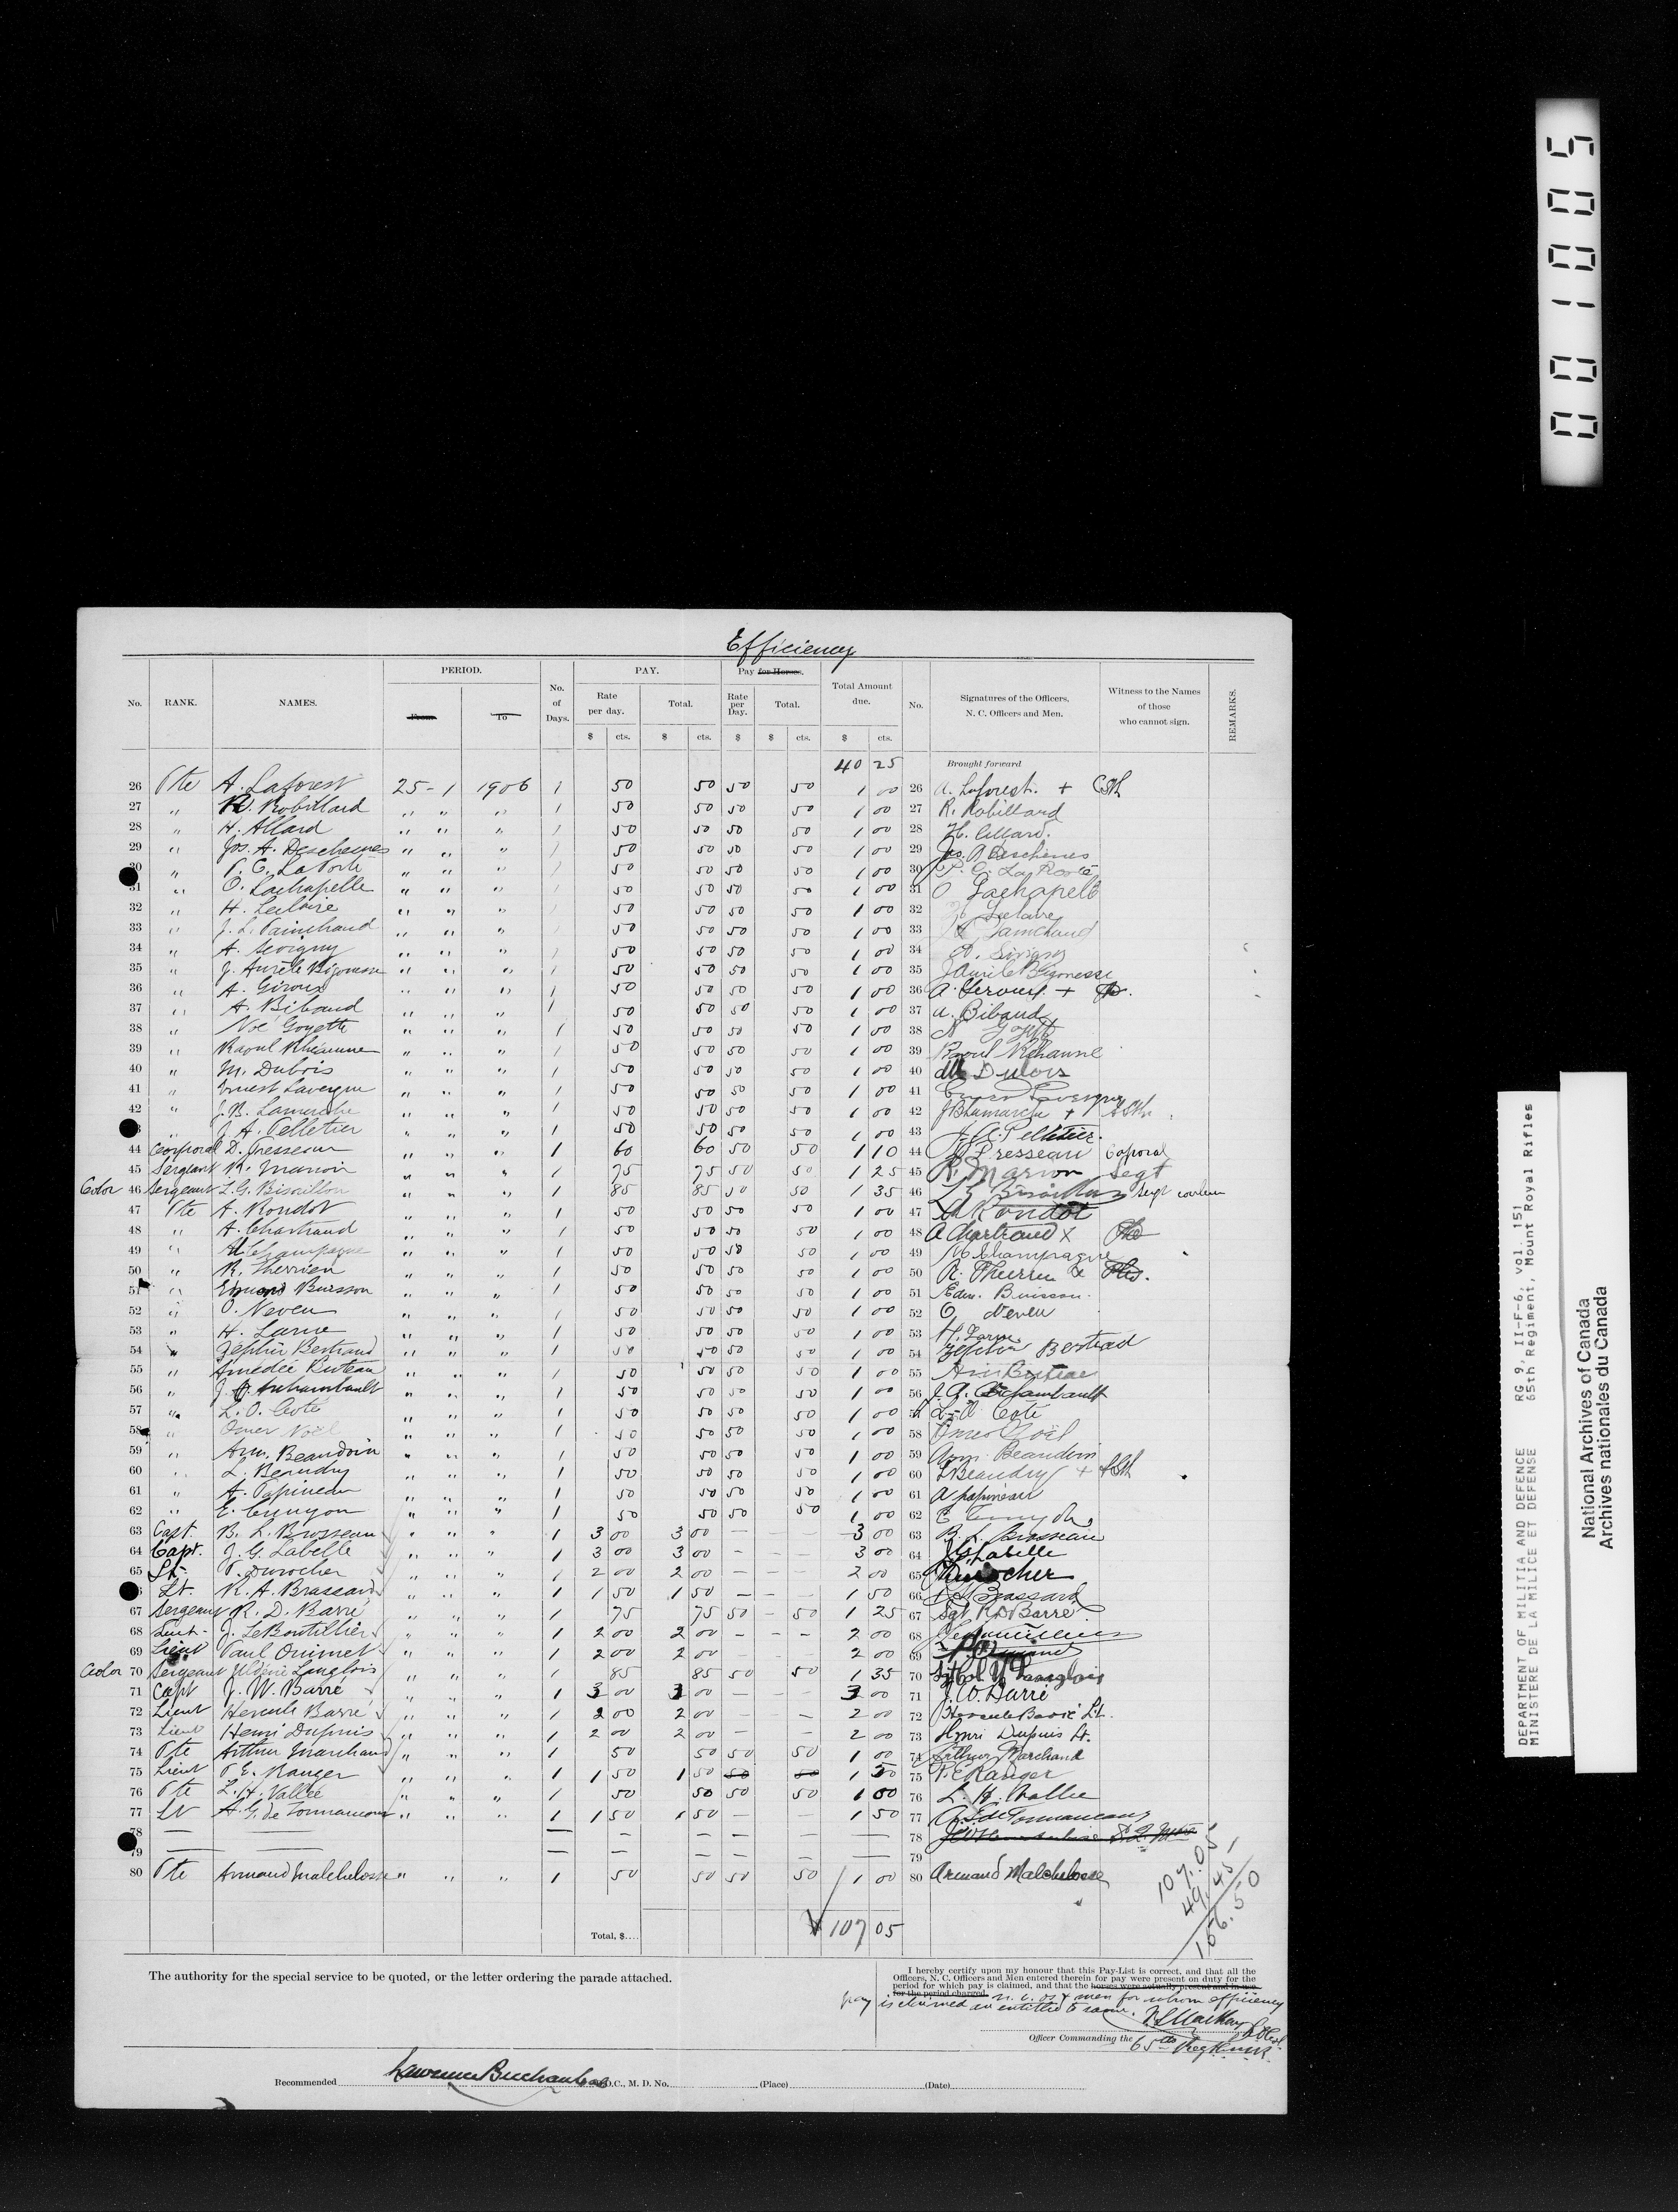 Efficiency
No. RANK. NAMES. PERIOD. From To No. of Days. PAY. Rate per day. Total. Pay for Horses. Rate per Day. Total. Total Amount due. No. Signatures of the Officers, N. C. Officers and Men. Witness to the Names of those who cannot sign. REMARKS.
$ cts. $ cts. $ $ cts. $ cts.
40 25 Brought forward
26 Pte A. Laforest 25 - 1 1906 1 50 50 50 50 1 00 26 A. Laforest. +
27 " R. Robillard " " " 1 50 50 50 50 1 00 27 R. Robillard
28 " H. Allard " " " 1 50 50 50 50 1 00 28 H. Allard.
29 " Jos. A. Deschenes " " " 1 50 50 50 50 1 00 29 Jos. A Deschenes
30 " P. E. LaPorte " " " 1 50 50 50 50 1 00 30 P. E. La Porte
31 " O. Lachapelle " " " 1 50 50 50 50 1 00 31 O Lachapelle
32 " H. Leclaire " " " 1 50 50 50 50 1 00 32 H Leclaire
33 " J. L. Painchaud " " " 1 50 50 50 50 1 00 33 Painchaud
34 " A. Sevigny " " " 1 50 50 50 50 1 00 34 A. Sevigny
35 " J. Aurèle Bigonesse " " " 1 50 50 50 50 1 00 35 J Aurele Bigonesse
36 " A. Giroux " " " 1 50 50 50 50 1 00 36 A. Giroux +
37 " A. Bibaud " " " 1 50 50 50 50 1 00 37 A. Bibaud
38 " Noé Goyette " " " 1 50 50 50 50 1 00 38 N Goyette
39 " Raoul Rhéaume " " " 1 50 50 50 50 1 00 39 Raoul Rhéaume
40 " M. Dubois " " " 1 50 50 50 50 1 00 40 M Dubois
41 " Ernest Lavergne " " " 1 50 50 50 50 1 00 41 Ernest Lavergne
42 " J. B. Lamarche " " " 1 50 50 50 50 1 00 42 J B Lamarche +
" J. A. Pelletier " " " 1 50 50 50 50 1 00 43 J. A. Pelletier.
44 Corporal D. Presseau " " " 1 60 60 50 50 1 10 44 D Presseau Caporal
45 Sergeant R. Marion " " " 1 75 75 50 50 1 25 45 R. Marion Segt
Color 46 Sergeant L. G. Bisaillon " " " 1 85 85 50 50 1 35 46 L G Bisaillon Sergt couleur
47 Pte A. Rondot " " " 1 50 50 50 50 1 00 47 A Rondot
48 " A. Chartrand " " " 1 50 50 50 50 1 00 48 A Chartrand X
49 " M. Champagne " " " 1 50 50 50 50 1 00 49 M Champagne
50 " R. Therrien " " " 1 50 50 50 50 1 00 50 R. Therrien X
51 " Edmond Buisson " " " 1 50 50 50 50 1 00 51 Edm. Buisson.
52 " O. Neveu " " " 1 50 50 50 50 1 00 52 O. Neveu
53 " H. Larue " " " 1 50 50 50 50 1 00 53 H. Larue
54 " Zéphir Bertrand " " " 1 50 50 50 50 1 00 54 Zephir Bertrand
55 " Amédée Buteau " " " 1 50 50 50 50 1 00 55 Buteau
56 " J. A. Archambault " " " 1 50 50 50 50 1 00 56 J. A. Archambault
57 " L. O. Coté " " " 1 50 50 50 50 1 00 57 L. O. Coté
58 " Omer Noël " " " 1 50 50 50 50 1 00 58 Omer Noël
59 " Arm. Beaudoin " " " 1 50 50 50 50 1 00 59 Arm. Beaudoin
60 " L. Beaudry " " " 1 50 50 50 50 1 00 60 L Beaudry +
61 " A. Papineau " " " 1 50 50 50 50 1 00 61 A papineau
62 " E. Cumyon " " " 1 50 50 50 50 1 00 62 E
63 Capt. B. L. Brosseau " " " 1 3 00 3 00 — 3 00 63 B. L. Brosseau
64 Capt. J. G. Labelle " " " 1 3 00 3 00 — — — 3 00 64 J G Labelle
65 Lt. P. Durocher " " " 1 2 00 2 00 — — — 2 00 65 Durocher
Lt. R. A. Brassard " " " 1 1 50 1 50 — — — 1 50 66 Brassard
67 Sergeant R. D. Barré " " " 1 75 75 50 — 50 1 25 67 Sgt R D Barré
68 Lieut. J. LeBoutillier " " " 1 2 00 2 00 — — — 2 00 68
69 Lieut Paul Ouimet " " " 1 2 00 2 00 — — — 2 00 69
Color 70 Sergeant Langlois " " " 1 85 85 50 50 1 35 70 Langlois
71 Capt J. W. Barré " " " 1 3 00 3 00 — — — 3 00 71 J. W. Barré
72 Lieut Hercule Barré " " " 1 2 00 2 00 — — — 2 00 72 Hercule Barré Lt.
73 Lieut Henri Dupuis " " " 1 2 00 2 00 — — 2 00 73 Henri Dupuis Lt.
74 Pte Arthur Marchand " " " 1 50 50 50 50 1 00 74 Arthur Marchand
75 Lieut P. E. Ranger " " " 1 1 50 1 50 50 50 1 50 75 P. E Ranger
76 Pte L. H. Vallée " " " 1 50 50 50 50 1 00 76 L. H. Vallée
77 Lt A. G. de Tonnancour " " " 1 1 50 1 50 — — 1 50 77 A. G. de Tonnancour
78 — — — — — — — — — 78
79 — — — — — — — — — 79
80 Pte Armand Malchelosse " " " 1 50 50 50 50 1 00 80 Armand Malchelosse
107.05
49.45
156.50
Total, $.... 107 05
The authority for the special service to be quoted, or the letter ordering the parade attached.
I hereby certify upon my honour that this Pay-List is correct, and that all the
Officers, N. C. Officers and Men entered therein for pay were present on duty for the
period for which pay is claimed, and that the horses were actually present and in use
for the period charged. N. C. Os & men for whom efficiency
pay is claimed are entitled to same.
Officer Commanding the 65th Regiment.
Recommended Lawrence Buchan D.O.C., M. D. No. (Place) (Date)
001005
DEPARTMENT OF MILITIA AND DEFENCE RG 9, II-F-6, vol. 151
MINISTERE DE LA MILICE ET DEFENSE 65th Regiment, Mount Royal Rifles
National Archives of Canada
Archives nationales du Canada